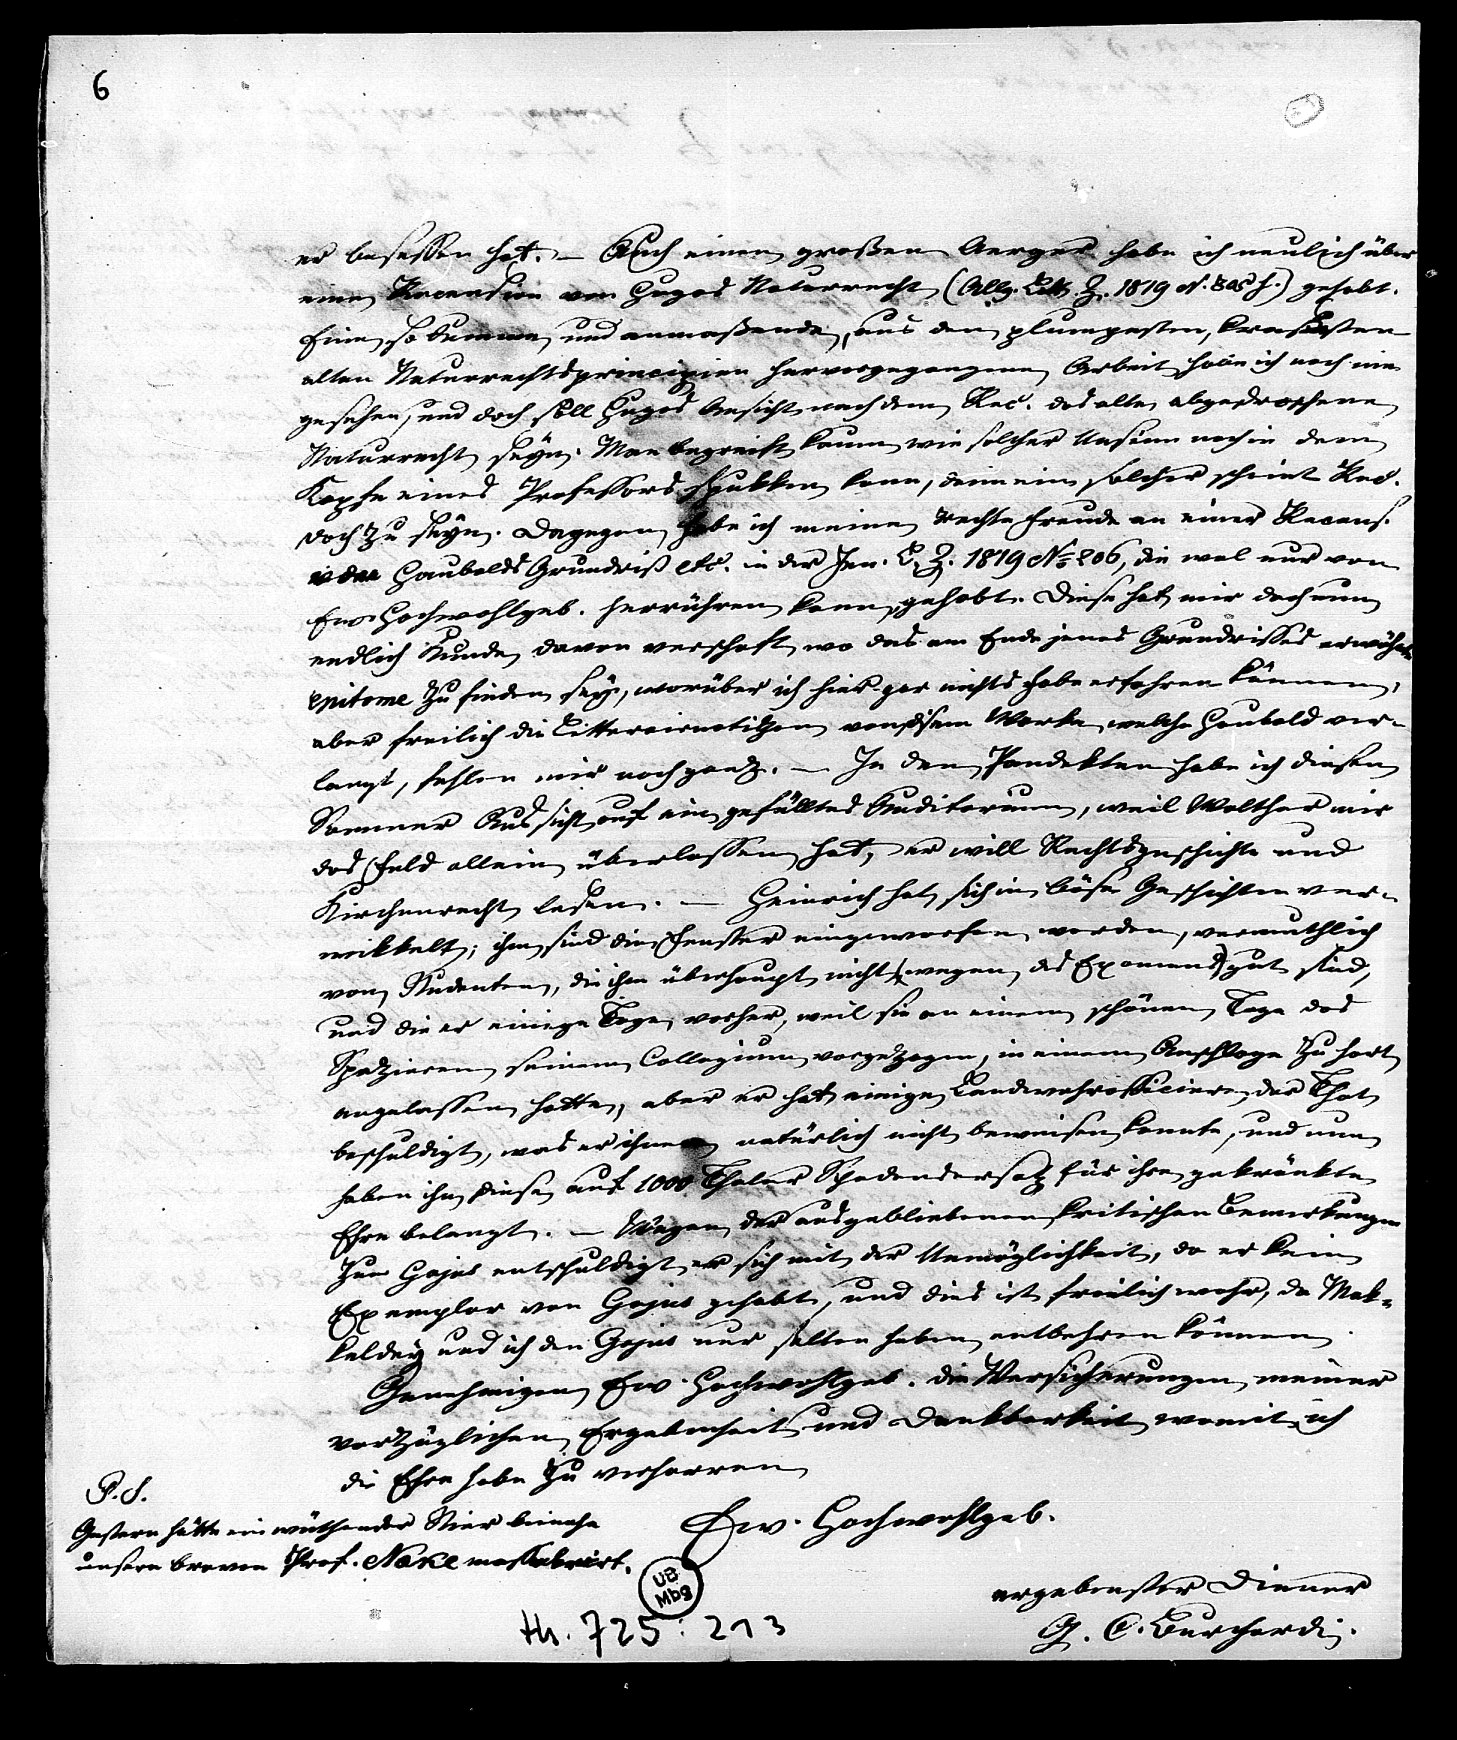 6
er besessen hat. – Auch einen großen Aerger habe ich neulich über
eine Recension von Hugos Naturrecht (Allg. Litt. Z. 1819 N. f.) gehabt.
Eine so dumme und anmaßende, aus den plumpesten, krassesten
alten Naturrechtsprincipien hervorgegangene Arbeit habe ich noch nie
gesehen, und doch soll Hugos Ansicht nach dem Rec. das alte abgedroschene
Naturrecht seyn. Man begreift kaum wie solcher Unsinn noch in dem
Kopfe eines Professors spukken kann, denn ein solcher scheint Rec.
doch zu seyn. Dagegen habe ich meine rechte Freude an einer Recens.
von Haubolds Grundriß etc. in der Jen. L. Z. 1819 No 206, die wol nur von
Ew. Hochwohlgeb. herrühren kann, gehabt. Diese hat mir doch nun
endlich Kunde davon verschaft wo das am Ende jenes Grundrisses erwähnte
epitome zu finden sey, worüber ich hier gar nichts habe erfahren können,
aber freilich die Litterärnotitzen von diesem Werke, welche Haubold ver-
langt, fehlen mir noch ganz. – In den Pandekten habe ich diesen
Sommer Aussicht auf ein gefülltes Auditorium, weil Walther mir
das Feld allein überlassen hat, er will Rechtsgeschichte und
Kirchenrecht lesen. – Heinrich hat sich in böse Geschichten ver-
wikkelt; ihm sind die Fenster eingeworfen worden, vermuthlich
von Studenten, die ihm überhaupt nicht (wegen des Examens) gut sind,
und die er einige Tage vorher, weil sie an einem schönen Tage das
Spatzieren seinem Collegium vorgezogen, in einem Anschlage zu hart
angelassen hatte, aber er hat einige Landwehrofficiere der That
beschuldigt, was er ihnen natürlich nicht beweisen konnte, und nun
haben ihn diese auf 1000 Thaler Schadensersatz für ihre gekränkte
Ehre belangt. – Wegen der ausgebliebenen kritischen Bemerkungen
zum Gajus entschuldigt er sich mit der Unmöglichkeit, da er kein
Exemplar von Gajus gehabt, und dies ist freilich wahr, da Mak-
keldey und ich den Gajus nur selten haben entbehren können.
Genehmigen Ew. Hochwohlgeb. die Versicherungen meiner
vorzüglichen Ergebenheit und Dankbarkeit womit ich
die Ehre habe zu verharren
Ew. Hochwohlgeb.
ergebenster Diener
G. C. Burchardi.
P.S.
Gestern hätte ein wüthender Stier beinahe
unsern braven Prof. Näke massakrirt.
UB
Mbg
Hs. 725: 213